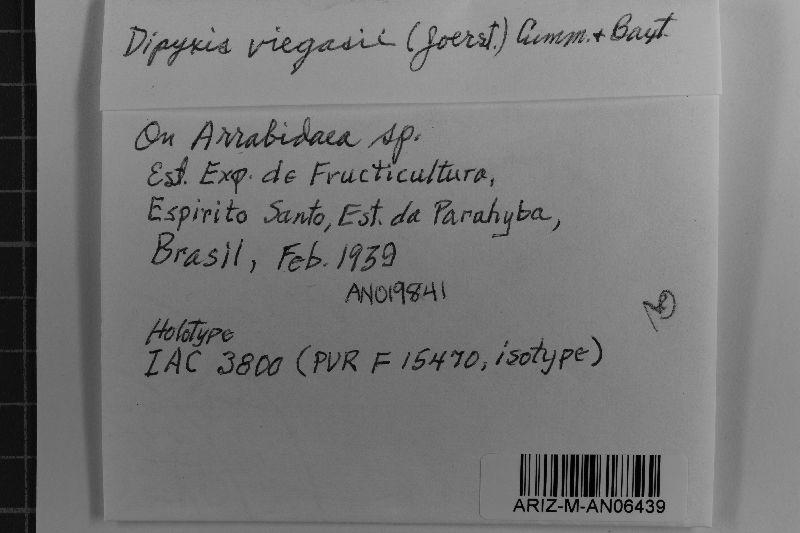 Dipyxis viegasii (Joerst.) Cumm. + Baxt.
On Arrabidaea sp.
Est. Exp. de Fructicultura,
Espirito Santo, Est. da Parahyba,
Brasil, Feb. 1939
AN019841
Holotype
IAC 3800 (PUR F 15470, isotype)
ARIZ-M-AN06439